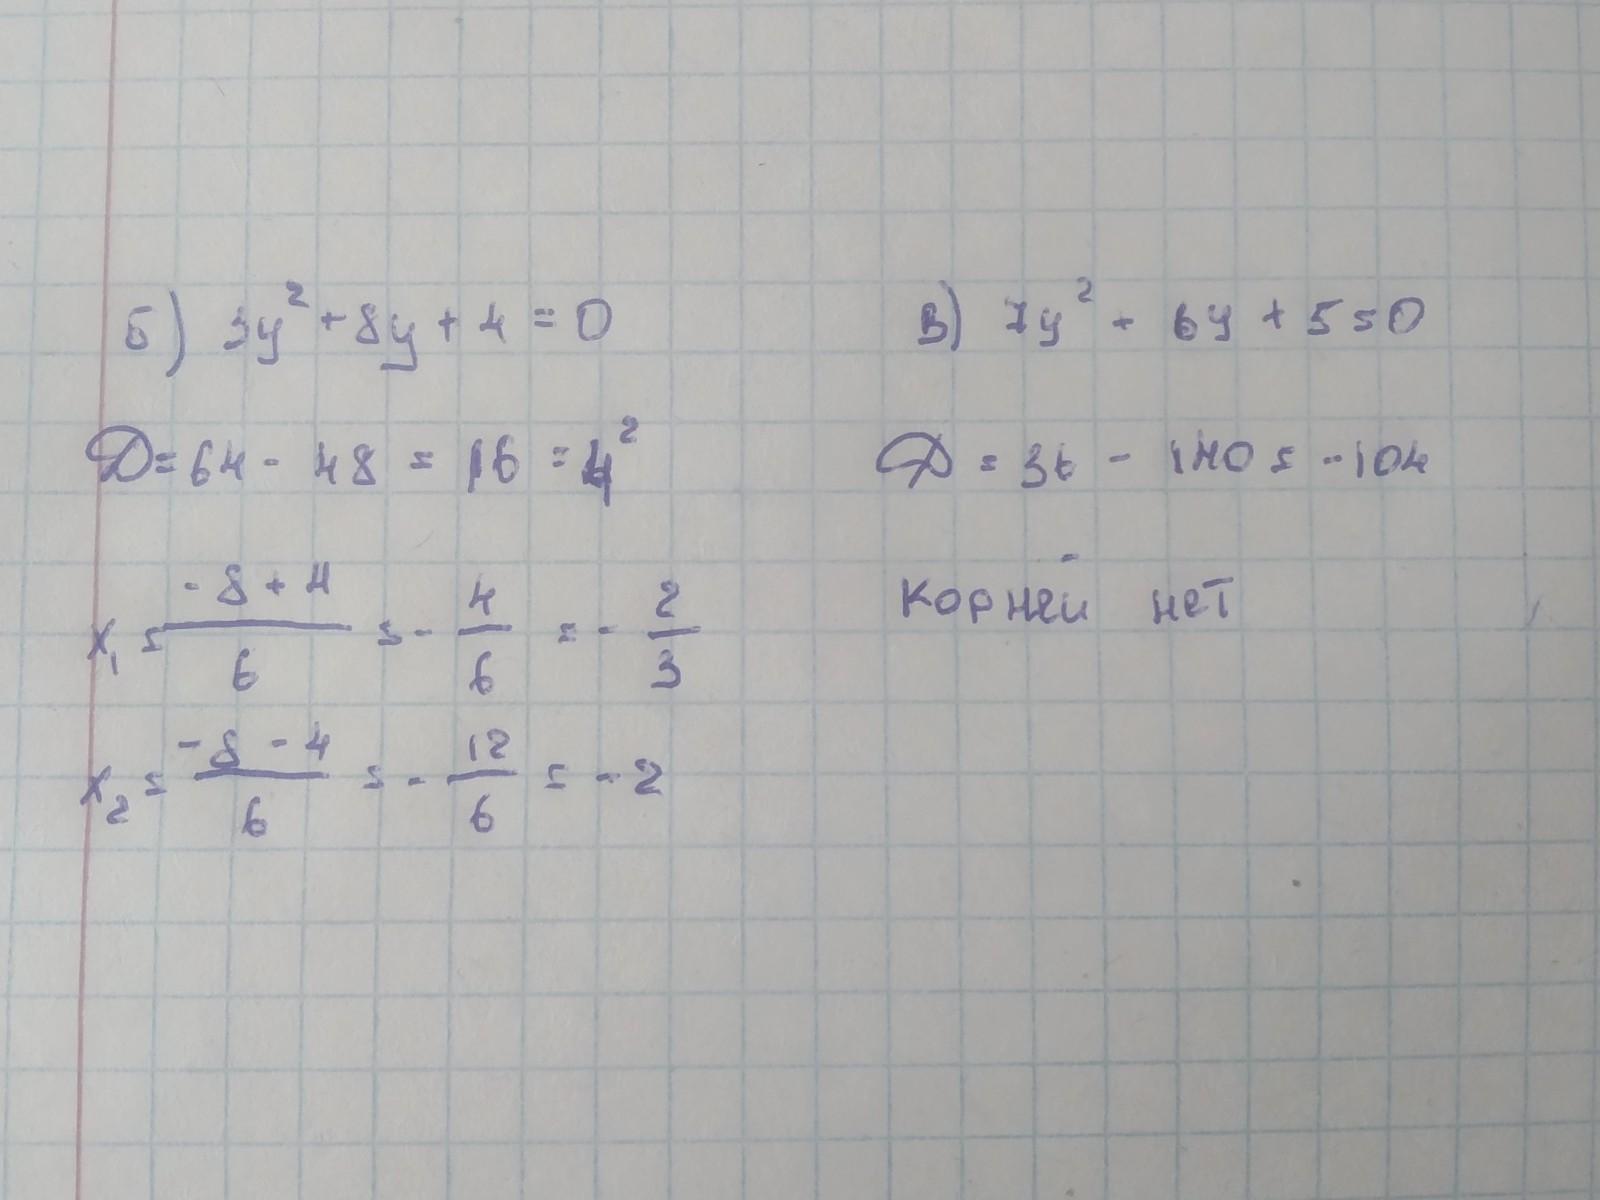 б) 3y² + 8y + 4 = 0
D = 64 - 48 = 16 = 4²
x₁ = (-8 + 4)/6 = - 4/6 = - 2/3
x₂ = (-8 - 4)/6 = - 12/6 = - 2
в) 7y² + 6y + 5 = 0
D = 36 - 140 = -104
Корней нет